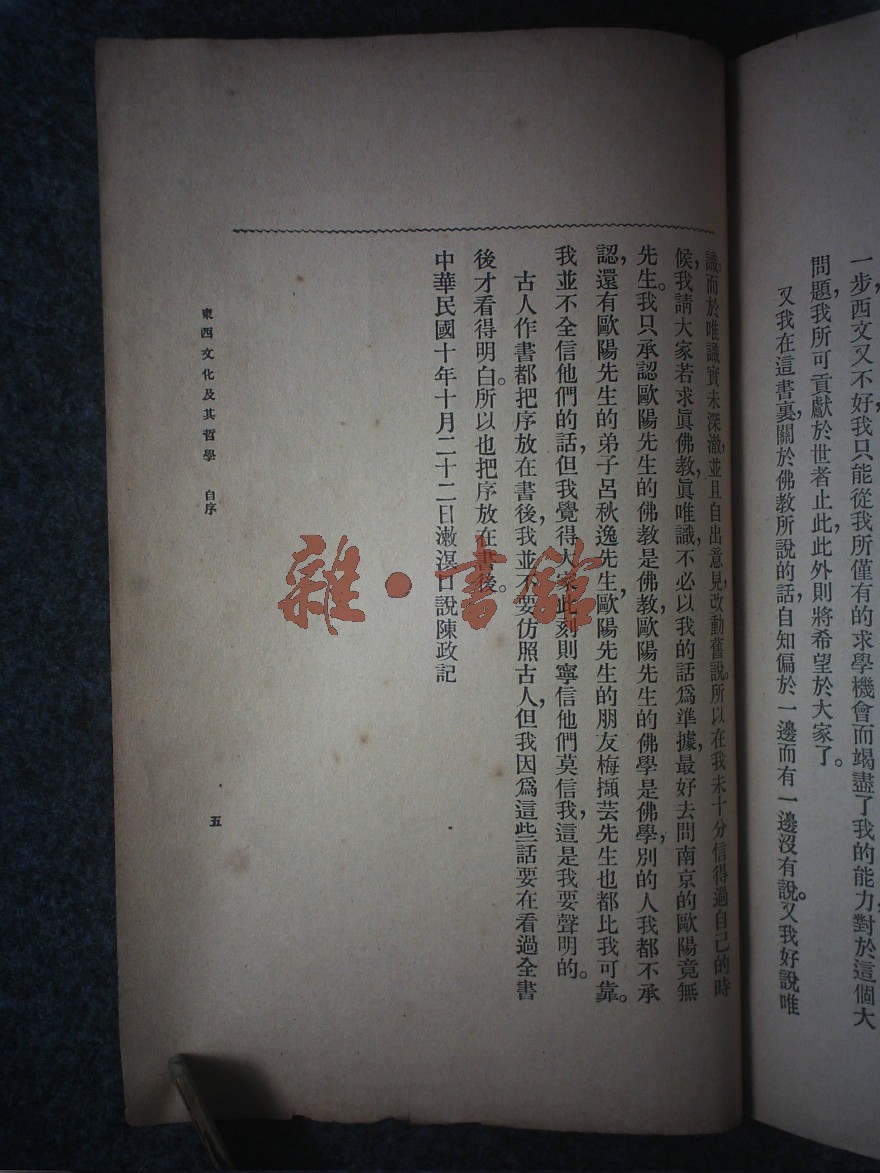 一步,西文又不好,我只能從我所僅有的求學機會而竭盡了我的能力,對於這個大
問題,我所可貢獻於世者止此,此外則將希望於大家了。
又我在這書裏,關於佛教所說的話,自知偏於一邊而有一邊沒有說。又我好說唯
識,而於唯識實未深澈,並且自出意見,改動舊說。所以在我未十分信得過自己的時
候,我請大家若求眞佛教,眞唯識,不必以我的話爲準據,最好去問南京的歐陽竟無
先生。我只承認歐陽先生的佛教是佛教,歐陽先生的佛學是佛學,別的人我都不承
認,還有歐陽先生的弟子呂秋逸先生,歐陽先生的朋友梅擷芸先生也都比我可靠。
我並不全信他們的話,但我覺得大家此刻則寧信他們莫信我,這是我要聲明的。
古人作書都把序放在書後,我並不要仿照古人,但我因爲這些話要在看過全書
後才看得明白。所以也把序放在書後。
中華民國十年十月二十二日漱溟口說陳政記
東西文化及其哲學 自序
五
雜·書館